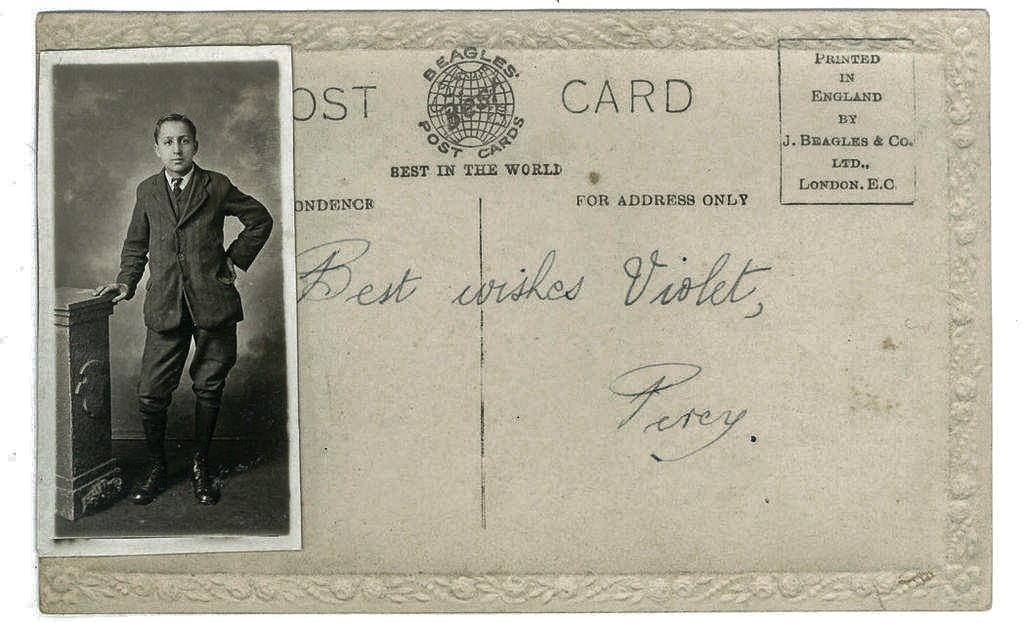 OST CARD
BEAGLES'
BEST
POST CARDS
BEST IN THE WORLD
PRINTED
IN
ENGLAND
BY
J. BEAGLES & CO.
LTD.,
LONDON. E.C.
ONDENCE
FOR ADDRESS ONLY
Best wishes Violet,
Percy.